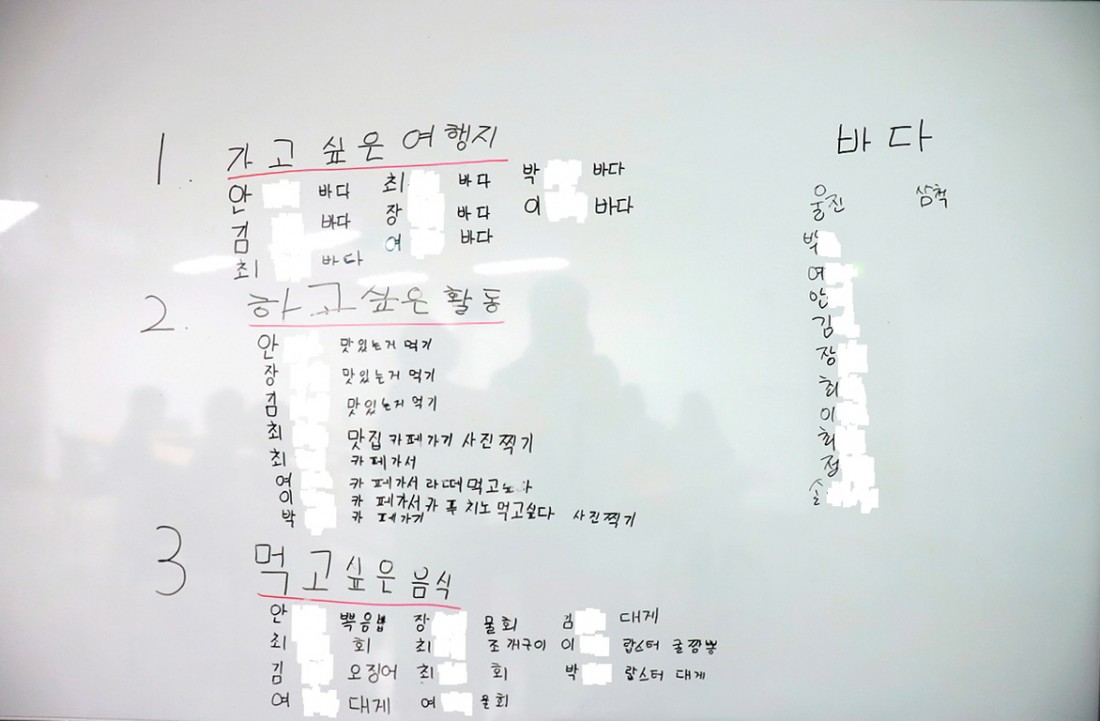 1. 가고 싶은 여행지
안 바다 최 바다 박 바다
김 바다 장 바다 이 바다
최 바다 여 바다
2. 하고싶은 활동
안 맛있는거 먹기
장 맛있는거 먹기
김 맛있는거 먹기
최 맛집 카페가기 사진찍기
최 카페가서
여 카페가서 라떼먹고
이 카페가서 카푸치노먹고싶다
박 카페가기 사진찍기
3 먹고싶은 음식
안 장 물회 김 대게
최 회 최 조개구이 이 랍스터 굴짬뽕
김 오징어 최 회 박 랍스터 대게
여 대게 여 물회
바다
울진 삼척
박
여
안
김
장
최
이
최
정